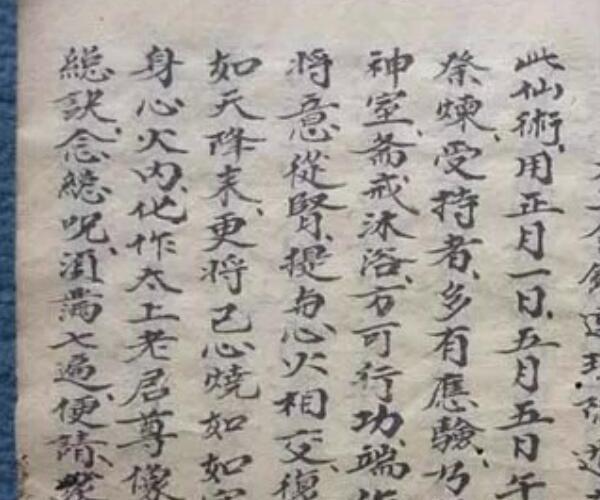 此仙術、用正月一日、五月五日午
祭煉、受持者、多有應驗、乃
神室、齋戒沐浴、方可行功、端
將意從腎、提与心火相交、復
如天降末、更將己心燒如如
身心火内、化作太上老君尊像
總訣、念總呪、須滿七遍、便請